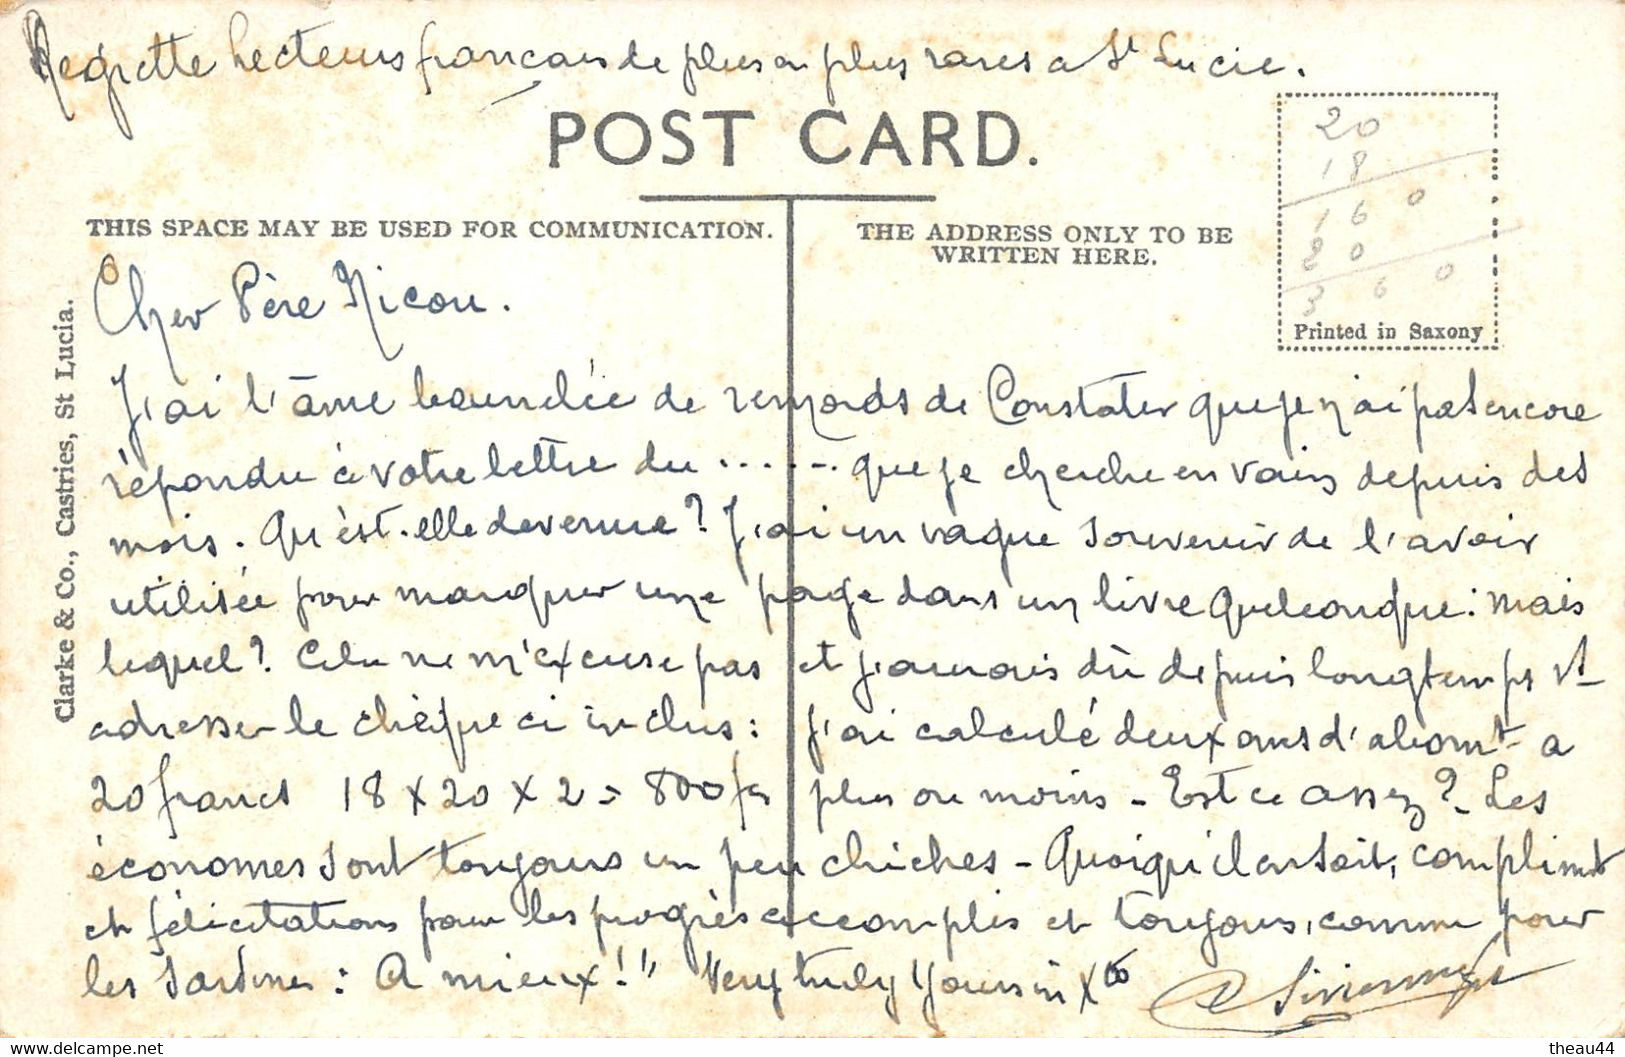 Regrette lecteurs français de plus en plus rares à St Lucie.
POST CARD.
THIS SPACE MAY BE USED FOR COMMUNICATION.
THE ADDRESS ONLY TO BE
WRITTEN HERE.
20
18
160
20
360
Printed in Saxony
Clarke & Co., Castries, St Lucia.
Cher Père Nicou.
J'ai l'âme bourrelée de remords de Constater que je n'ai pas encore
répondu à votre lettre du ...... que je cherche en vain depuis des
mois. Qu'est-elle devenue? J'ai un vague souvenir de l'avoir
utilisée pour marquer une page dans un livre quelconque: mais
lequel? Cela ne m'excuse pas et j'aurais dû depuis longtemps vs
adresser le chèque ci inclus: j'ai calculé deux ans d'abonnt à
20 francs 18 x 20 x 2 = 800 frs plus ou moins - Est ce assez? - Les
économes sont toujours un peu chiches - Quoiqu'il en soit, complimts
et félicitations pour les progrès accomplis et toujours, comme pour
les : A mieux!" Very truly yours in Xto